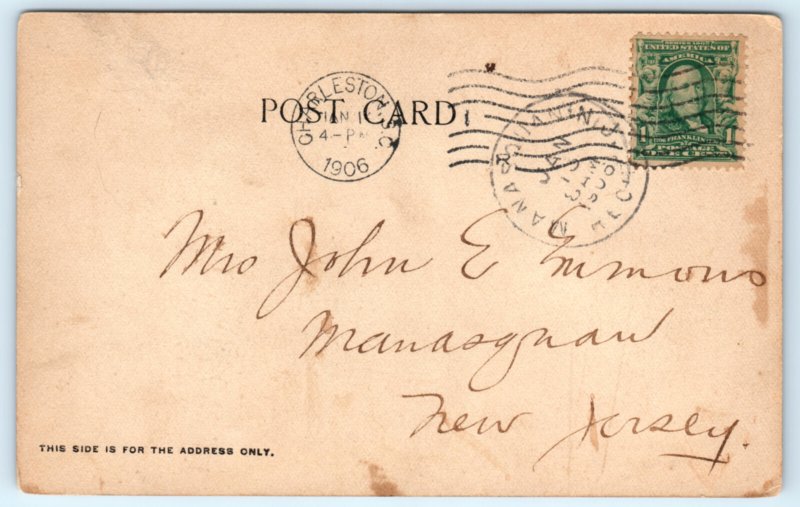 POST CARD
CHARLESTON, S.C.
JAN 1
4-PM
1906
MANASQUAN, N.J.
JAN
SERIES 1902
UNITED STATES OF
AMERICA
FRANKLIN
POSTAGE
Mrs John E Emmons
Manasquan
New Jersey.
THIS SIDE IS FOR THE ADDRESS ONLY.